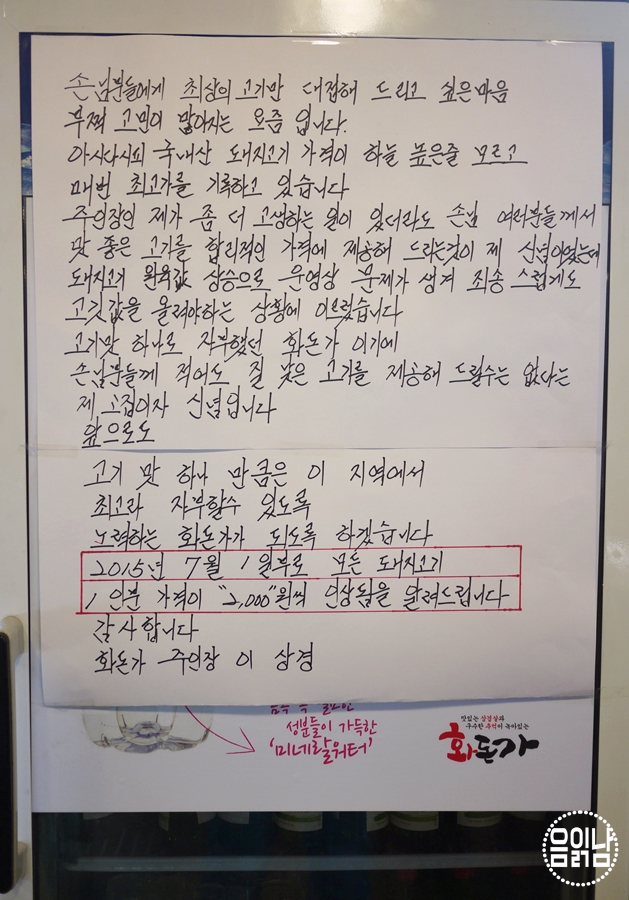 손님분들에게 최상의 고기만 대접해 드리고 싶은마음
부쩍 고민이 많아지는 요즘 입니다.
아시다시피 국내산 돼지고기 가격이 하늘 높은줄 모르고
매번 최고가를 기록하고 있습니다
주인장인 제가 좀 더 고생하는 일이 있더라도 손님 여러분들께서
맛 좋은 고기를 합리적인 가격에 제공해 드리는것이 제 신념이었는데
돼지고기 원육값 상승으로 운영상 문제가 생겨 죄송 스럽게도
고깃값을 올려야하는 상황에 이르렀습니다
고기맛 하나로 자부했던 화돈가 이기에
손님분들께 적어도 질 낮은 고기를 제공해 드릴수는 없다는
제 고집이자 신념입니다
앞으로도
고기 맛 하나 만큼은 이 지역에서
최고라 자부할수 있도록
노력하는 화돈가가 되도록 하겠습니다
2015년 7월 1일부로 모든 돼지고기
1인분 가격이 "2,000"원씩 인상됨을 알려드립니다
감사합니다
화돈가 주인장 이 상경
성분들이 가득한
'미네랄워터'
맛있는 삼겹살과
구수한 추억이 녹아있는
화돈가
음읽남